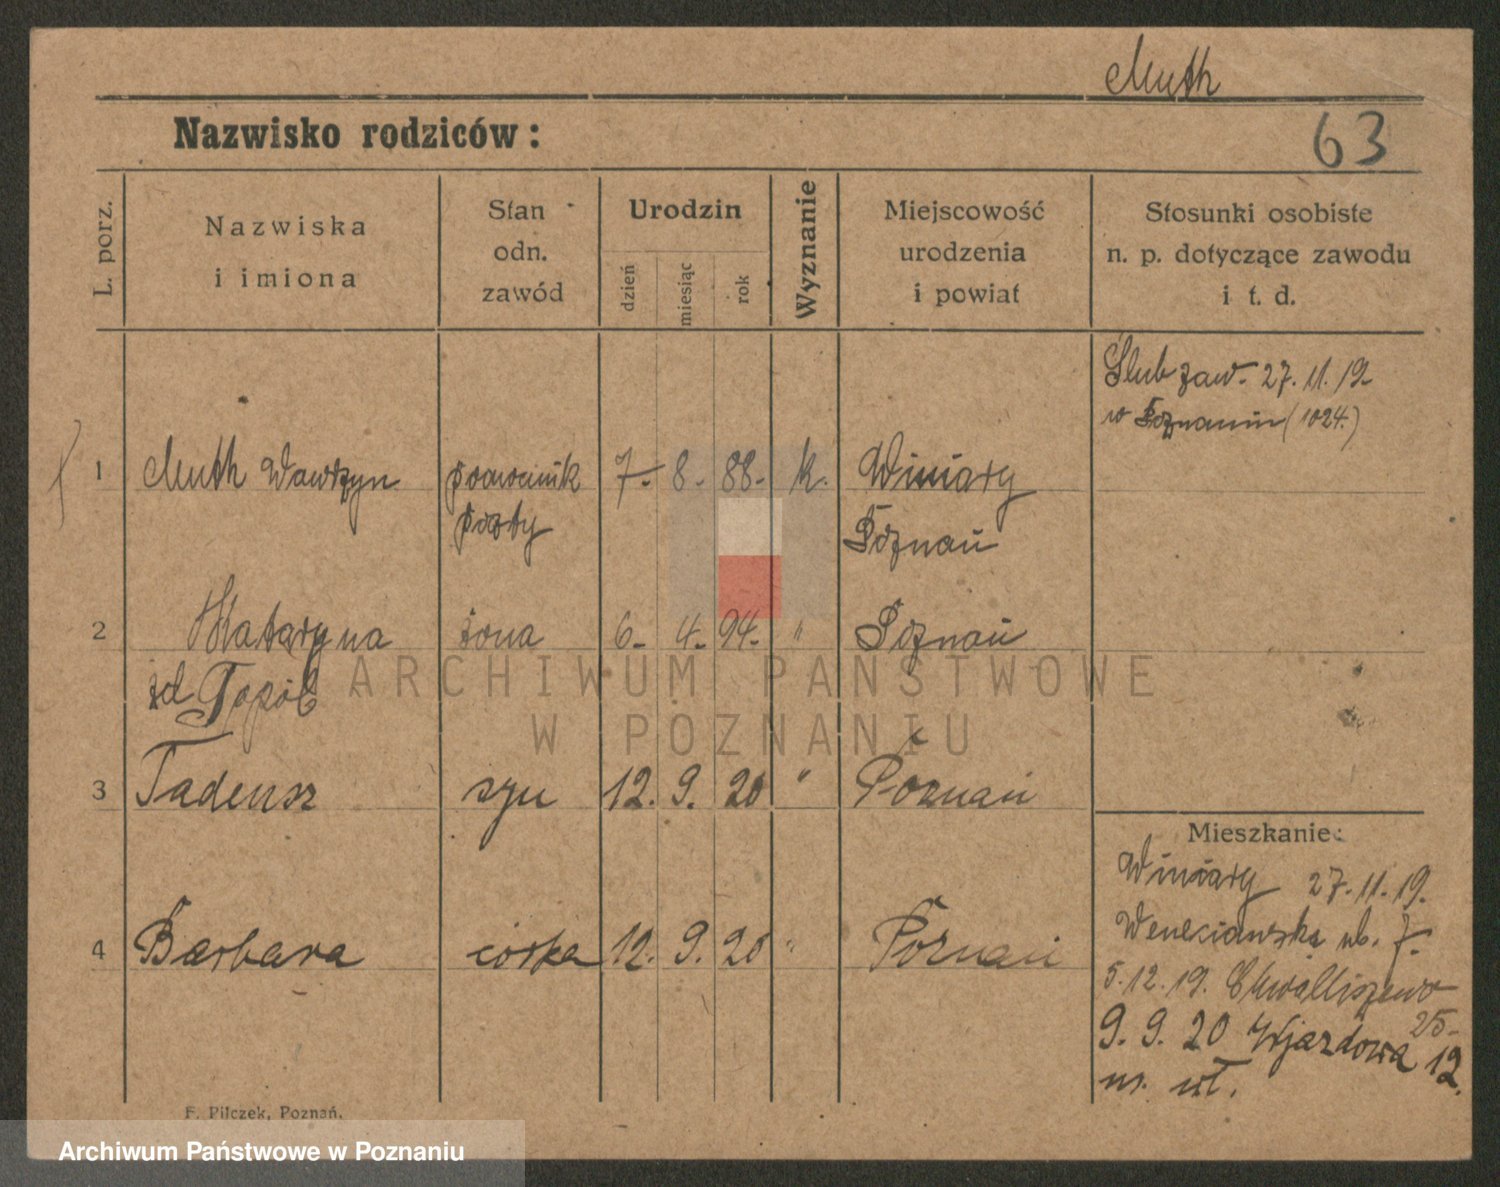 Muth
Nazwisko rodziców:
63
L. porz.
Nazwiska
i imiona
Stan
odn.
zawód
Urodzin
dzień
miesiąc
rok
Wyznanie
Miejscowość
urodzenia
i powiat
Stosunki osobiste
n. p. dotyczące zawodu
i t. d.
Ślub zaw. 27. 11. 19.
w Poznaniu (1024.)
1 Muth Wawrzyn pomocnik 7. 8. 88. k. Winiary
poczty Poznań
2 Katarzyna żona 6. 4. 94. " Poznań
zd Topól
ARCHIWUM PAŃSTWOWE
W POZNANIU
3 Tadeusz syn 12. 9. 20 " Poznań
4 Barbara córka 12. 9. 20 " Poznań
Mieszkanie:
Winiary 27. 11. 19.
Wenecjańska nb. 7.
5. 12. 19. Chwaliszewo
25
9. 9. 20 Wjazdowa 12.
F. Pilczek, Poznań.
Archiwum Państwowe w Poznaniu